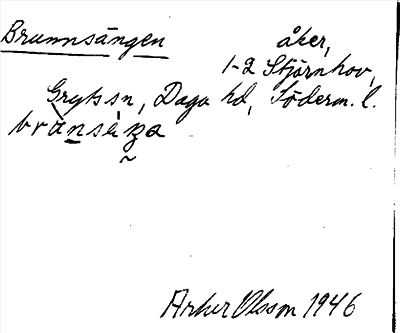 Brunnsängen åker,
1-2 Stjärnhov,
Grytssn, Daga hd, Söderm. l.
Olsson 1946